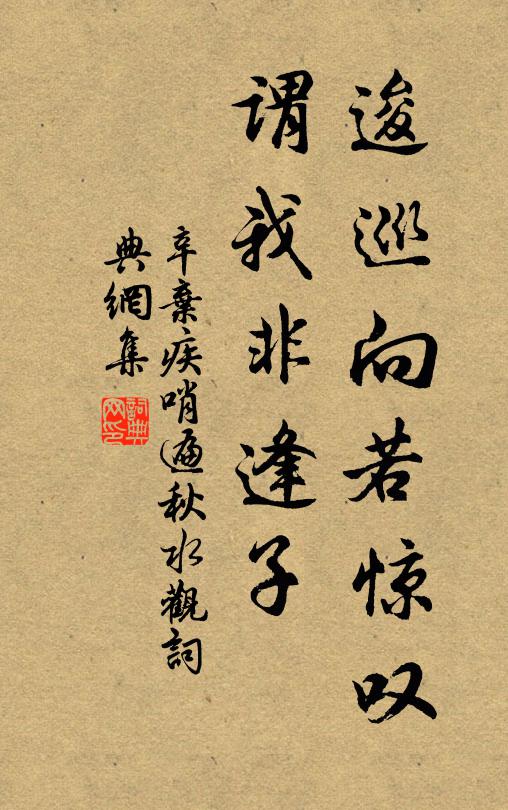 逡巡向若惊叹
谓我非逢子
辛棄疾哨遍秋水觀詞
典網集
詞典
网印